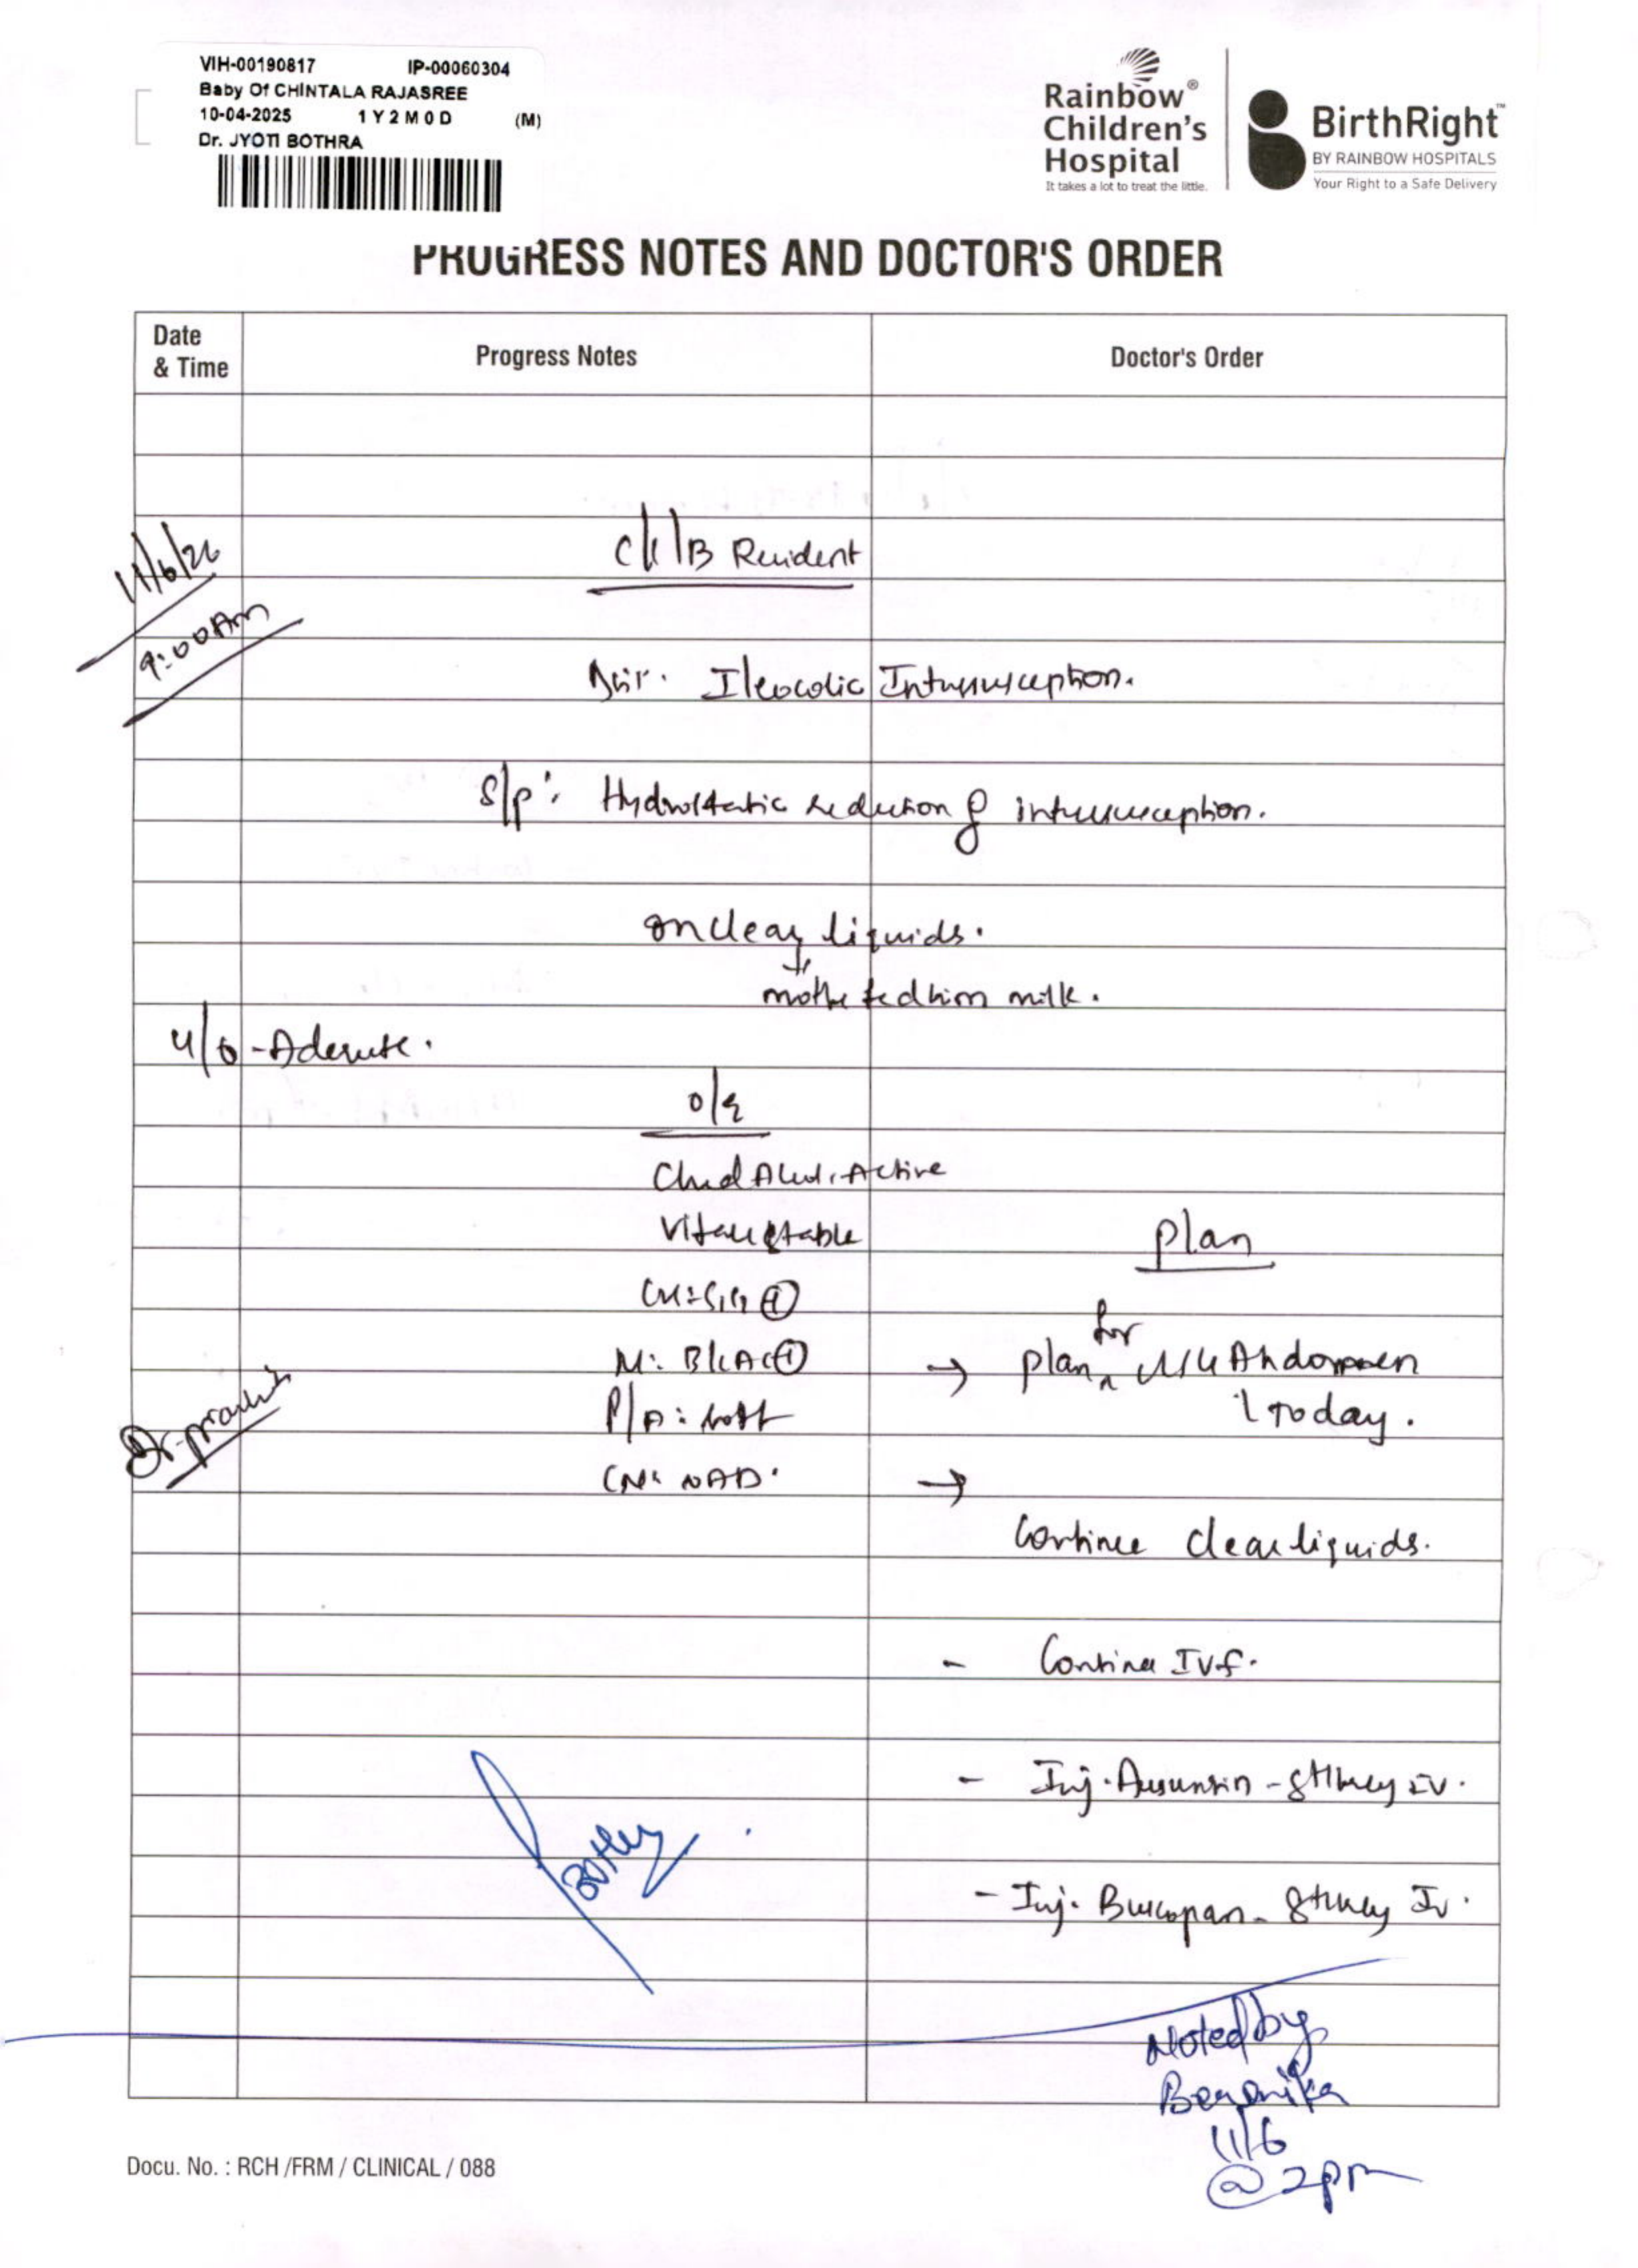 VIH-00190817 IP-00060304
Baby Of CHINTALA RAJASREE
10-04-2025 1Y2M0D (M)
Dr. JYOTI BOTHRA
Rainbow®
Children's
Hospital
It takes a lot to treat the little.
BirthRight™
BY RAINBOW HOSPITALS
Your Right to a Safe Delivery
PROGRESS NOTES AND DOCTOR'S ORDER
Date & Time Progress Notes Doctor's Order
11/6/26
9:00AM
Resident
Ileocolic Intussusception.
S/p: Hydrostatic reduction of intussusception.
on clear liquids.
mother fed him milk.
U/O - Adequate.
O/E
Child Alert, Active
Vitals stable
Plan
P/A: soft
CNS: NAD.
→ plan for USG Abdomen
today.
→
Continue clear liquids.
- Continue IVF.
- Inj. IV.
- Inj. Buscopan - IV.
Noted by
11/6
@ 2pm
Docu. No. : RCH /FRM / CLINICAL / 088